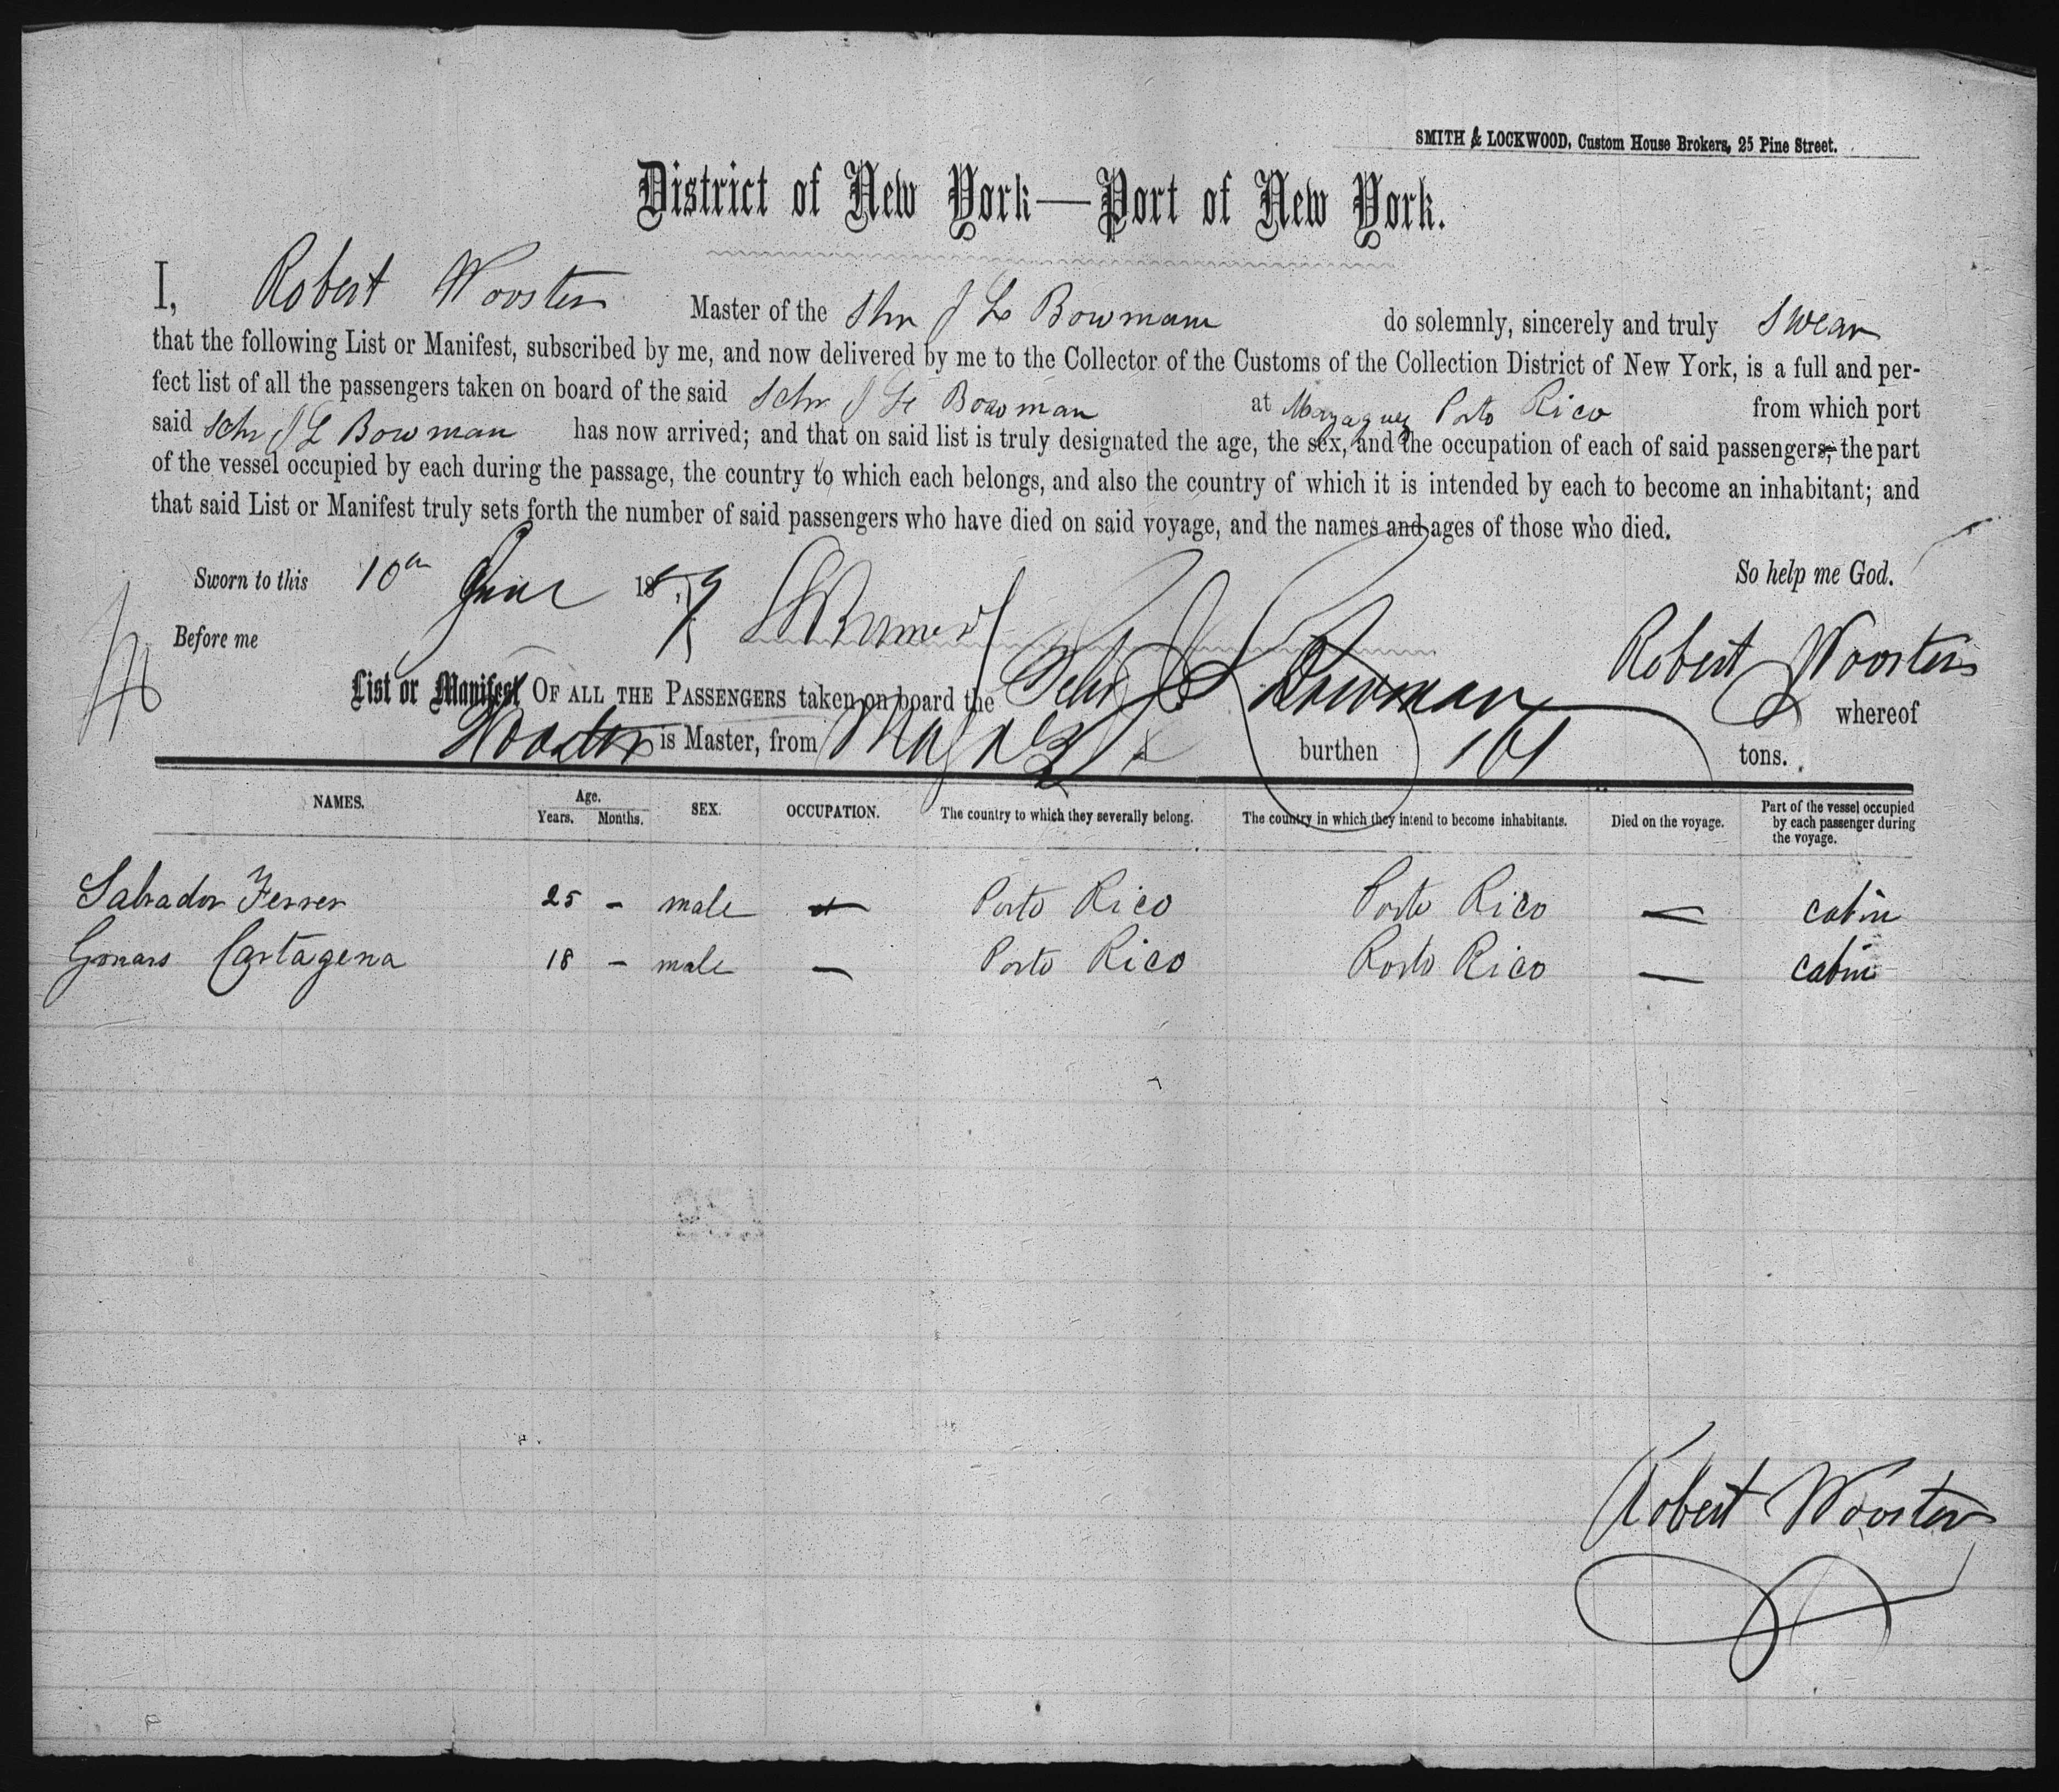 SMITH & LOCKWOOD, Custom House Brokers, 25 Pine Street.
District of New York—Port of New York.
I, Robert Wooster Master of the Shr J L Bowman do solemnly, sincerely and truly swear
that the following List or Manifest, subscribed by me, and now delivered by me to the Collector of the Customs of the Collection District of New York, is a full and per-
fect list of all the passengers taken on board of the said Schr J L Bowman at Mayaguez Porto Rico from which port
said Schr J L Bowman has now arrived; and that on said list is truly designated the age, the sex, and the occupation of each of said passengers, the part
of the vessel occupied by each during the passage, the country to which each belongs, and also the country of which it is intended by each to become an inhabitant; and
that said List or Manifest truly sets forth the number of said passengers who have died on said voyage, and the names and ages of those who died.
Sworn to this 10th June 1879 So help me God.
Before me Robert Wooster
List or Manifest OF ALL THE PASSENGERS taken on board the Schr J L Bowman whereof
Wooster is Master, from burthen 161 tons.
NAMES. Age. Years. Months. SEX. OCCUPATION. The country to which they severally belong. The country in which they intend to become inhabitants. Died on the voyage. Part of the vessel occupied by each passenger during the voyage.
Salvador Ferrer 25 - male — Porto Rico Porto Rico — cabin
Cartagena 18 - male — Porto Rico Porto Rico — cabin
Robert Wooster